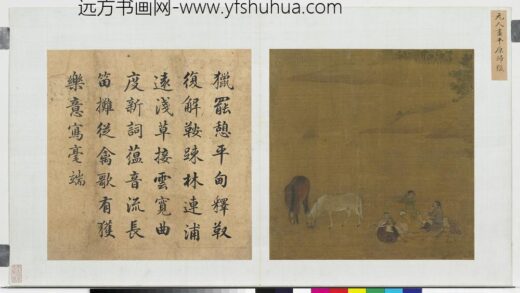 远方书画网-www.yfshuhua.com
元人畫平原
獵罷憩平甸釋
復解鞍踈林連浦
遠淺草接雲寬曲
度新詞蘊音流長
笛攤從禽歌有獲
樂意寫毫端